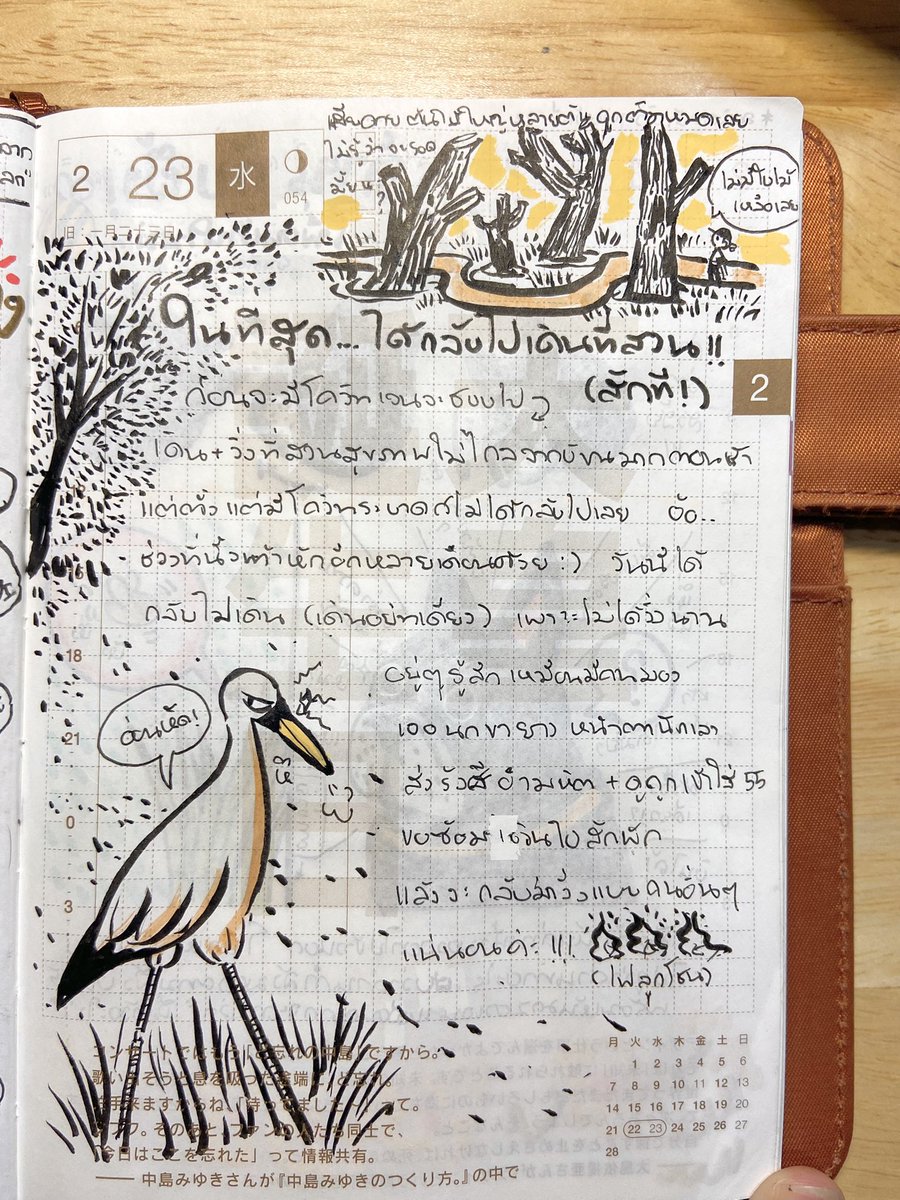 เสียดาย ต้นไม้ใหญ่หลายต้น ถูกตัดหมดเลย
ไม่รู้ว่าจะรอด
มั้ย
ไม่มีใบไม้
เหลือเลย
2
23
水
054
旧:一月二十三日
ในที่สุด... ได้กลับไปเดินที่สวน!!
(สักที!)
2
ก่อนจะมีโควิท เจนจะชอบไป
เดิน+วิ่งที่สวนสุขภาพไม่ไกลจากบ้านมากตอนเช้า
แต่ตั้งแต่มีโควิทระบาดก็ไม่ได้กลับไปเลย
ช่วงที่นิ้วเท้าหักอีกหลายเดือนด้วย :) วันนี้ได้
กลับไปเดิน (เดินอย่างเดียว) เพราะไม่ได้วิ่งนาน
อยู่ๆ รู้สึกเหมือนมีคนมอง
เจอนกขายาว หน้าตานักเลง
ส่งรังสีอำมหิต + ดูถูกเข้าใส่ 55
ขอซ้อมเดินไปสักพัก
แล้วจะกลับมาวิ่งแบบคนอื่นๆ
แน่นอนค่ะ !!!
(ไฟลุกโชน)
อ่อนหัด!
หึ
18
21
0
3
コンサートではもう「ど忘れの中島」ですから。
歌いそうと息を吸った途端に、ど忘れ。
手来ますからね、「待ってました〜」って。
フフ。そのあと、ファンの人たち同士で、
「今日はここを忘れた」って情報共有。
── 中島みゆきさんが『中島みゆきのつくり方。』の中で
月 火 水 木 金 土 日
1 2 3 4 5 6
7 8 9 10 11 12 13
14 15 16 17 18 19 20
21 22 23 24 25 26 27
28